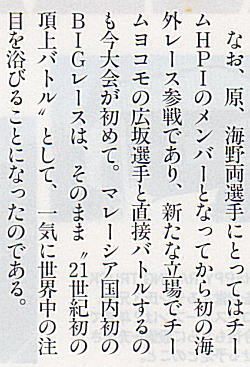 なお、原、海野両選手にとってはチー
ムHPIのメンバーとなってから初の海
外レース参戦であり、新たな立場でチー
ムヨコモの広坂選手と直接バトルするの
も今大会が初めて。マレーシア国内初の
BIGレースは、そのまま〝21世紀初の
頂上バトル〟として、一気に世界中の注
目を浴びることになったのである。